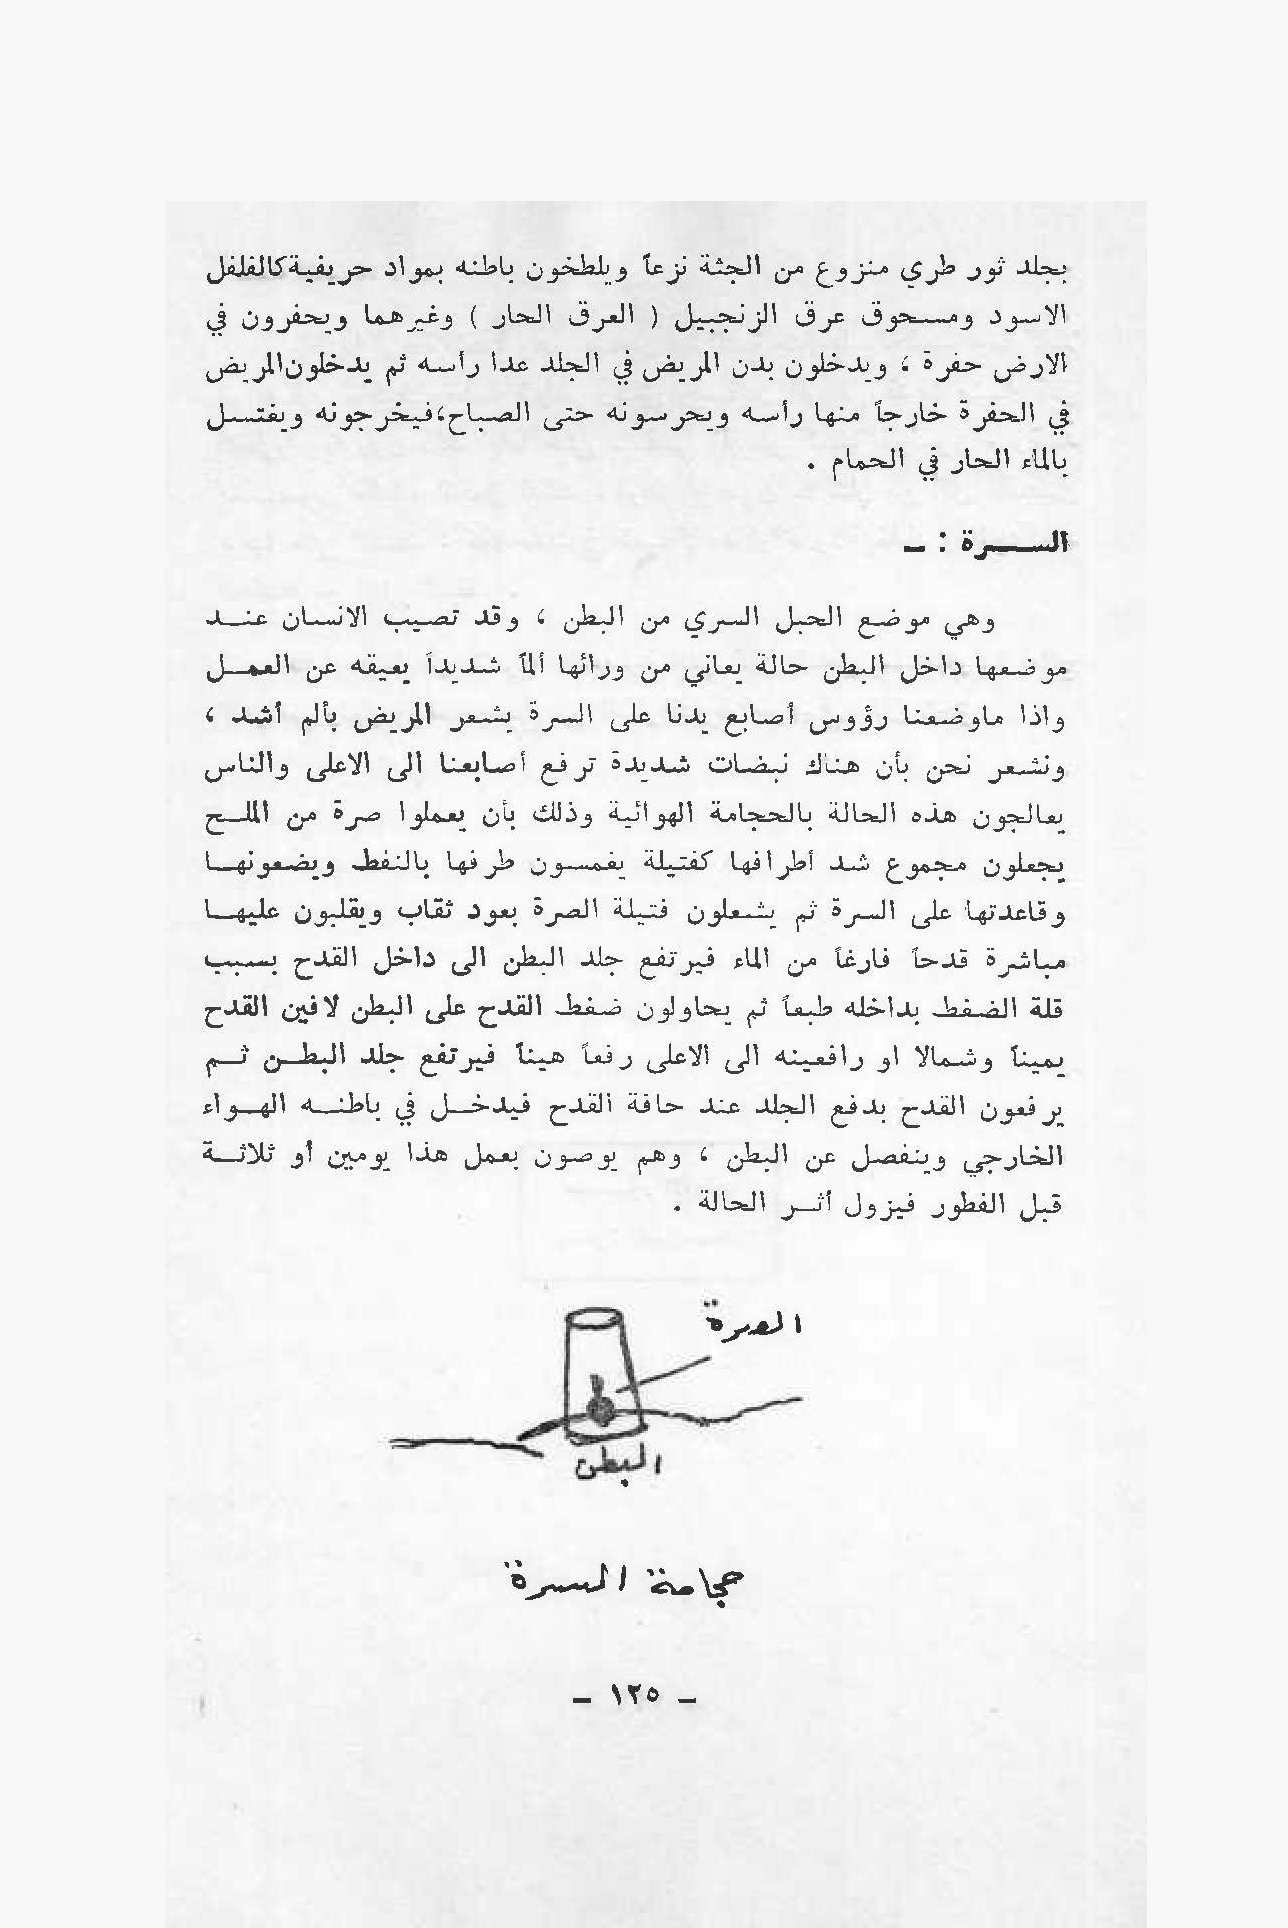 بجلد ثور طري منزوع من الجثة نزعاً ويلطخون باطنه بمواد حريفية كالفلفل
الاسود ومسحوق عرق الزنجبيل ( العرق الحار ) وغيرهما ويحفرون في
الارض حفرة ، ويدخلون بدن المريض في الجلد عدا رأسه ثم يدخلون المريض
في الحفرة خارجاً منها رأسه ويحرسونه حتى الصباح،فيخرجونه ويغتسل
بالماء الحار في الحمام .
السرة : ـ
وهي موضع الحبل السري من البطن ، وقد تصيب الانسان عند
موضعها داخل البطن حالة يعاني من ورائها ألماً شديداً يعيقه عن العمل
واذا ماوضعنا رؤوس أصابع يدنا على السرة يشعر المريض بألم أشد ،
ونشعر نحن بأن هناك نبضات شديدة ترفع أصابعنا الى الاعلى والناس
يعالجون هذه الحالة بالحجامة الهوائية وذلك بأن يعملوا صرة من الملح
يجعلون مجموع شد أطرافها كفتيلة يغمسون طرفها بالنفط ويضعونها
وقاعدتها على السرة ثم يشعلون فتيلة الصرة بعود ثقاب ويقلبون عليها
مباشرة قدحاً فارغاً من الماء فيرتفع جلد البطن الى داخل القدح بسبب
قلة الضغط بداخله طبعاً ثم يحاولون ضغط القدح على البطن لافين القدح
يميناً وشمالا او رافعينه الى الاعلى رفعاً هيناً فيرتفع جلد البطن ثم
يرفعون القدح بدفع الجلد عند حافة القدح فيدخل في باطنه الهواء
الخارجي وينفصل عن البطن ، وهم يوصون بعمل هذا يومين أو ثلاثة
قبل الفطور فيزول أثر الحالة .
الصرة
البطن
حجامة السرة
ـ ١٢٥ ـ